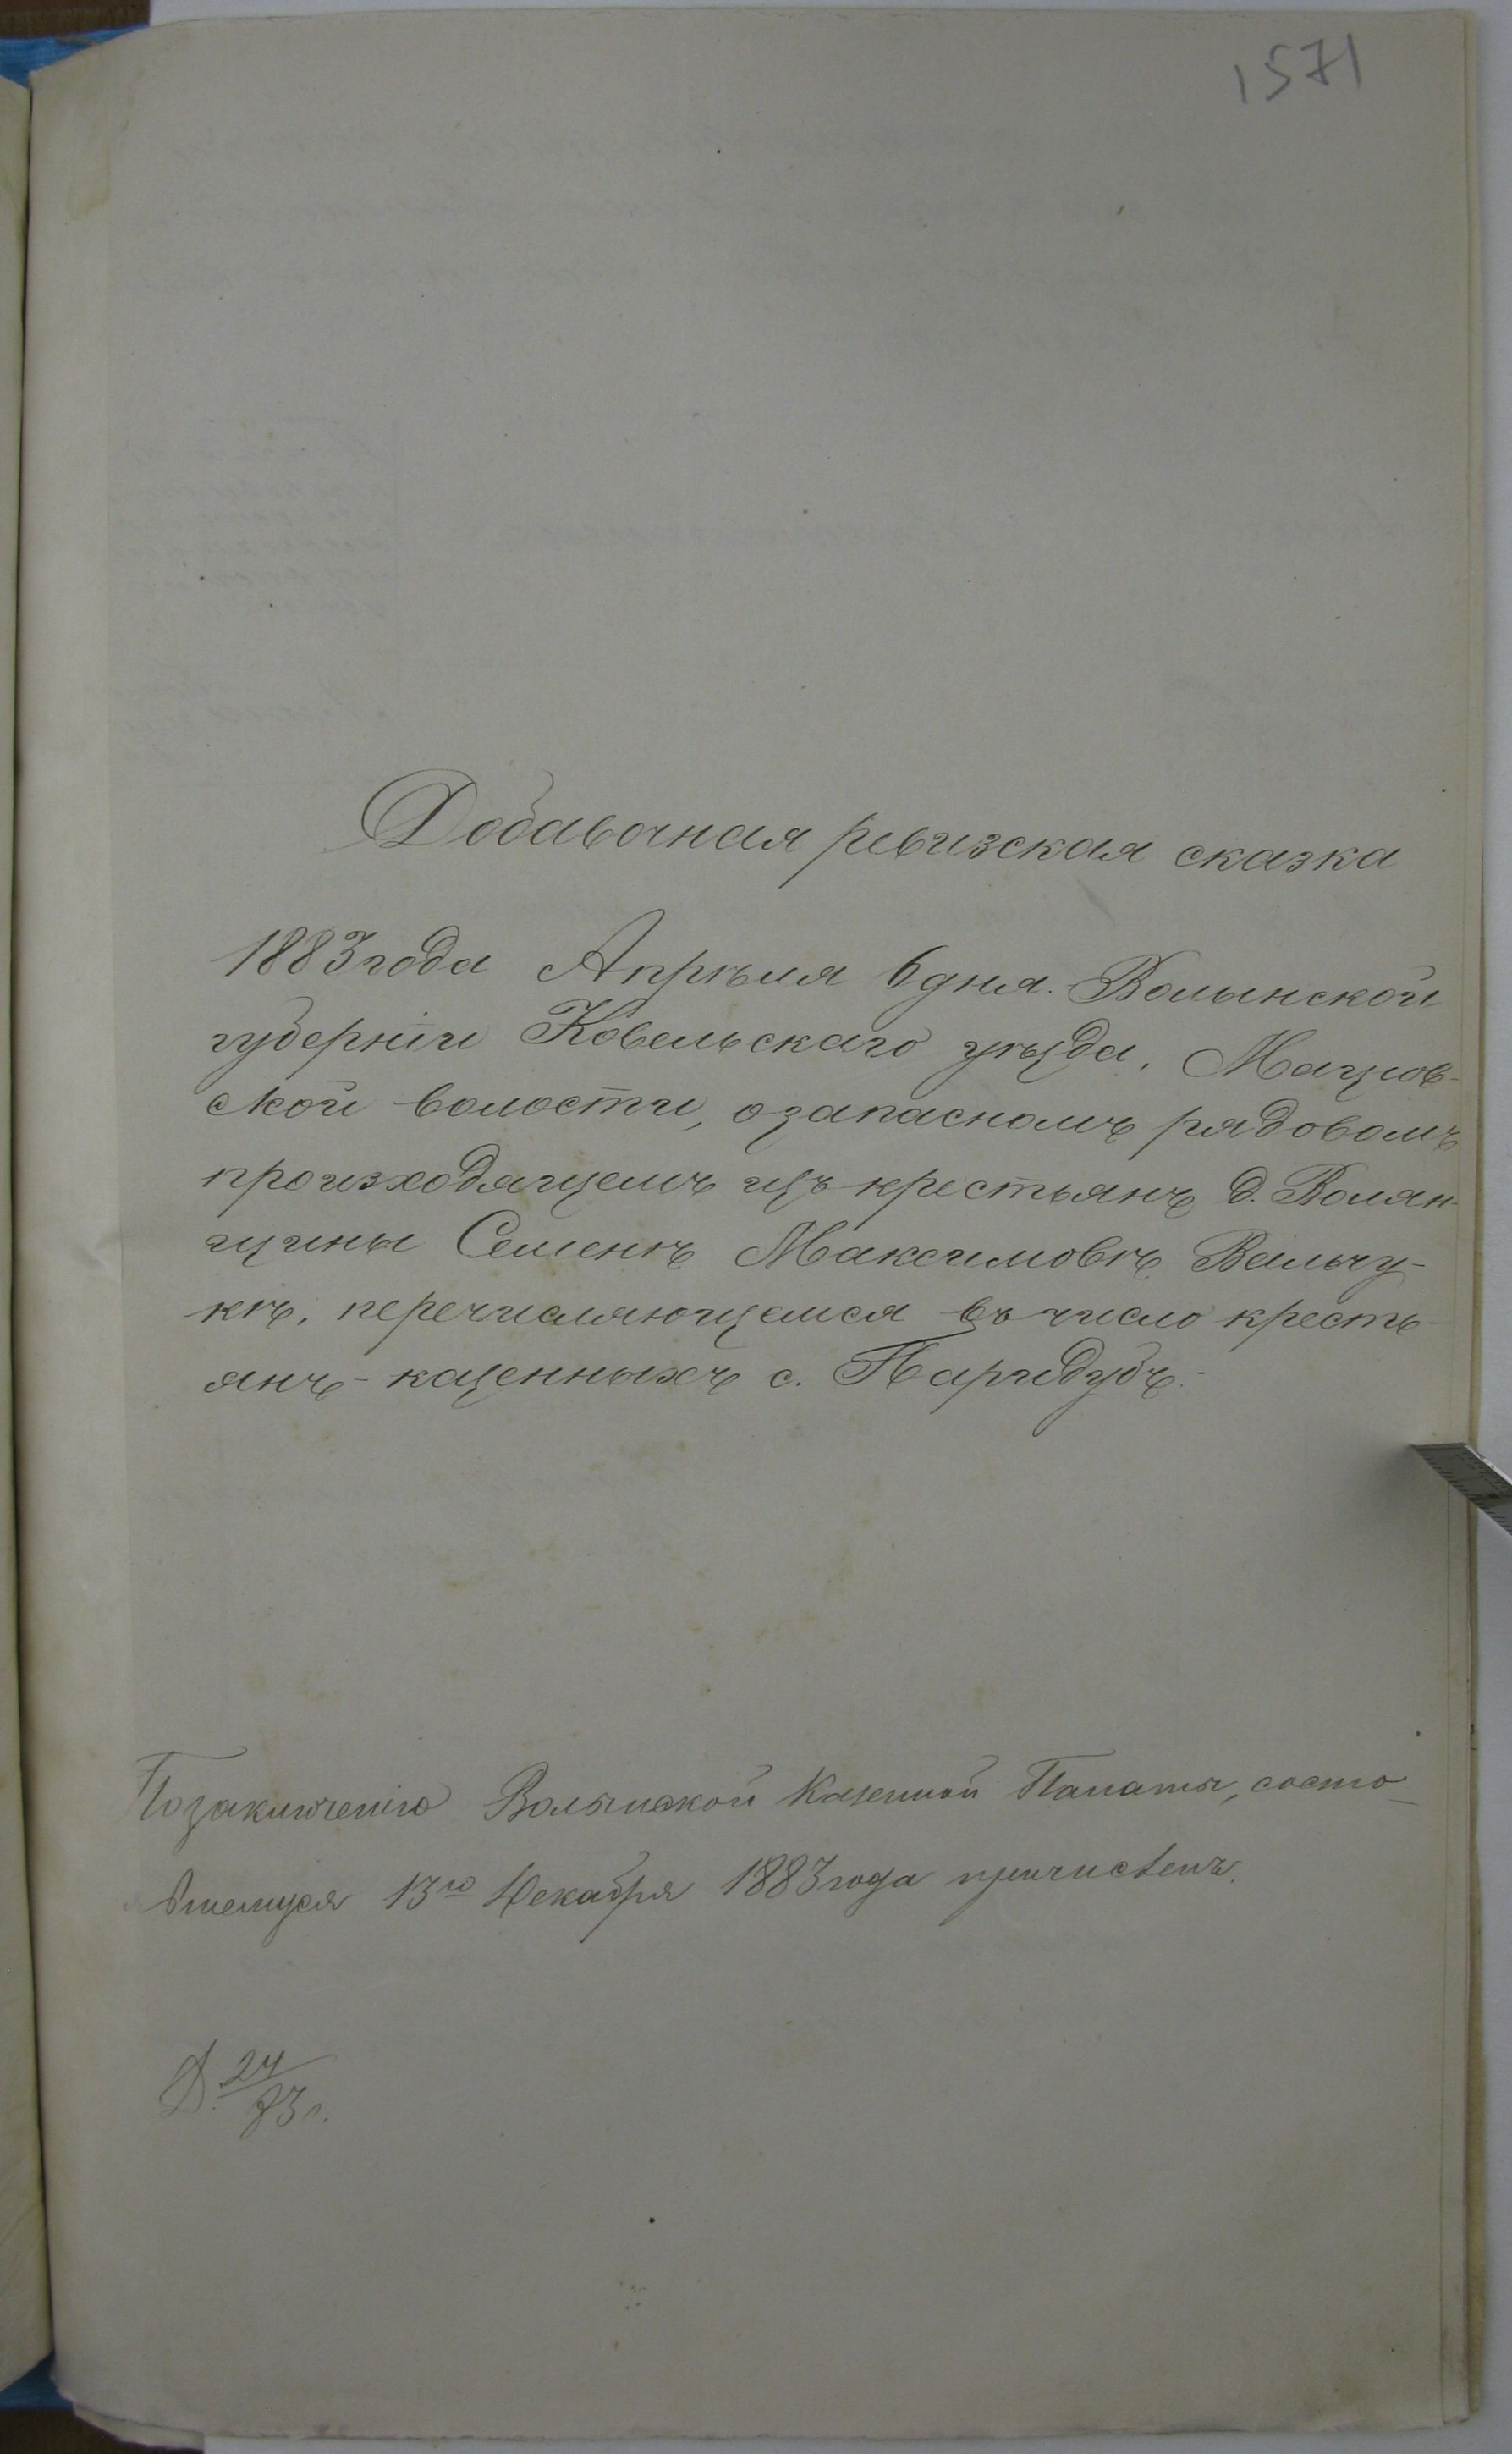 1571
Добавочная ревизская сказка
1883 года Апрѣля 6 дня. Волынской
губерніи Ковельскаго уѣзда, Мацiов-
ской волости, о запасномъ рядовомъ
произходящемъ изъ крестьянъ д. Волян-
щины Семенѣ Максимовѣ Вальчу-
кѣ, перечисляющемся въ число кресть-
янъ-казенныхъ с. Паридубъ.-
По заключенію Волынской Казенной Палаты, состо-
явшемуся 13го Декабря 1883 года причисленъ.
Д. 24/83 г.